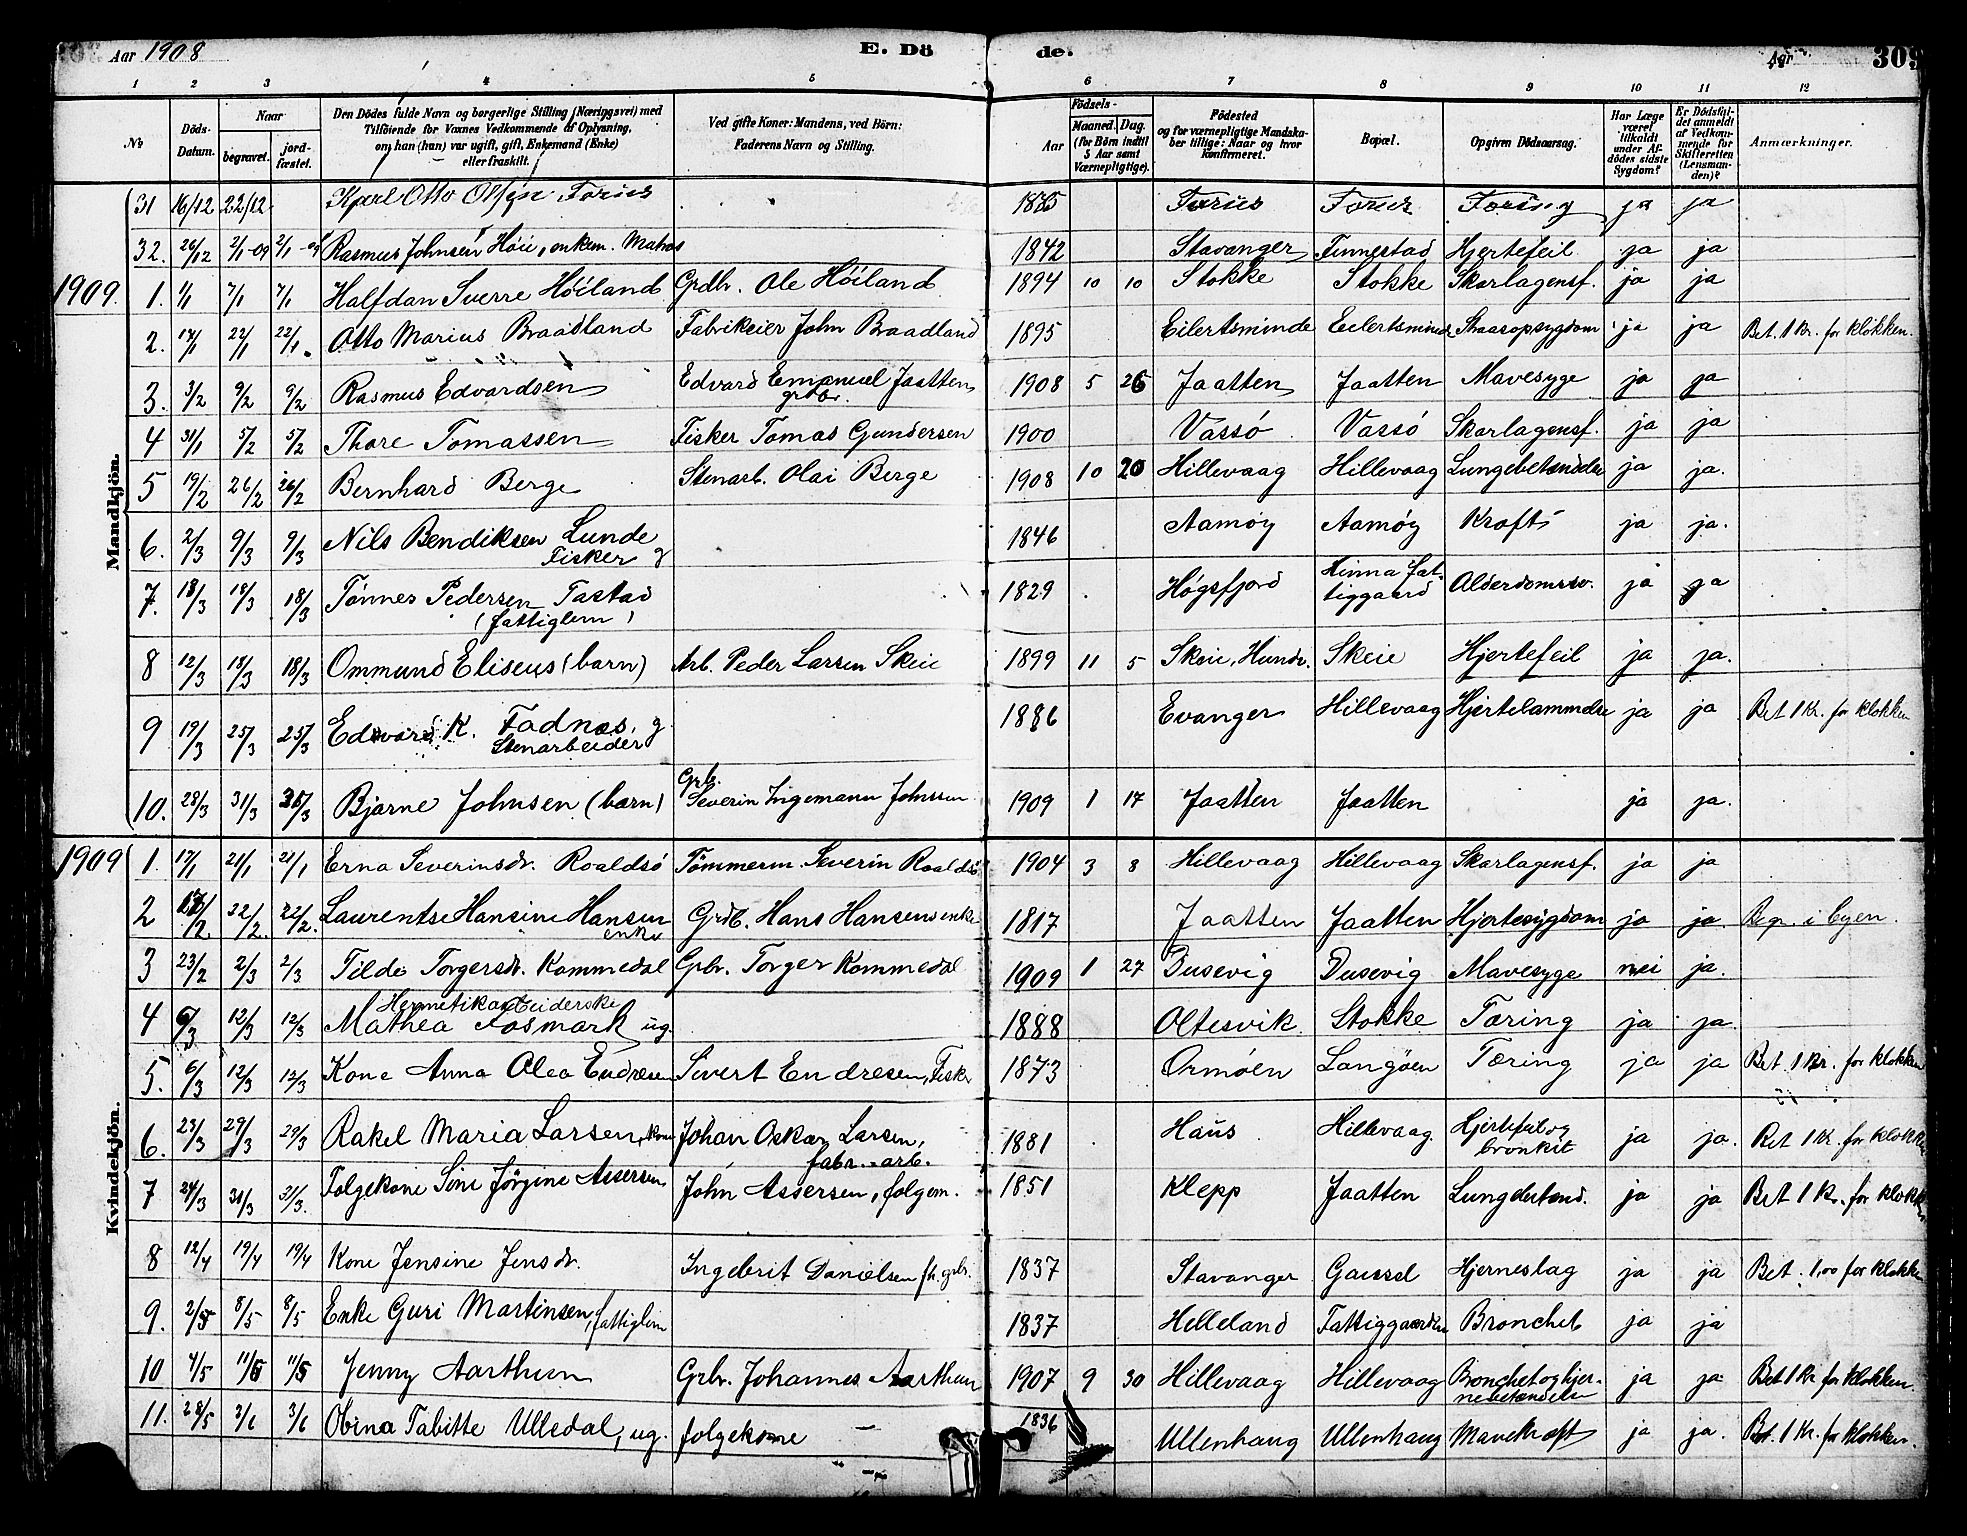 Aar 1908 E. Dö de. Aar 309
1 2 3 4 5 6 7 8 9 10 11 12
№ Döds-Datum. Naar begravet. jord-fæstet. Den Dödes fulde Navn og borgerlige Stilling (Næringsvei) med Tilföiende for Voxnes Vedkommende af Oplysning, om han (hun) var ugift, gift, Enkemand (Enke) eller fraskilt. Ved gifte Koner: Mandens, ved Börn: Faderens Navn og Stilling. Födsels- Aar Maaned. Dag. (for Börn indtil 5 Aar samt Værnepligtige). Födested og for værnepligtige Mandskaber tillige: Naar og hvor konfirmeret. Bopæl. Opgiven Dödsaarsag. Har Læge været tilkaldt under Afdödes sidste Sygdom? Er Dödsfaldet anmeldt af Vedkommende for Skifteretten (Lensmanden)? Anmærkninger.
Mandkjön.
31 16/12 22/12 Karl Otto Olsen Forus 1875 Forus Forus ja ja
32. 26/12 2/1-09 2/1-09 Rasmus Johnsen Höie, enkem. Matros 1842 Stavanger Finnestad Hjertefeil ja ja
1909. 1. 1/1 7/1 7/1 Halfdan Sverre Höiland Grdbr. Ole Höiland 1894 10 10 Stokke Stokke Skarlagensf. ja ja
2. 17/1 22/1 22/1 Otto Marius Braadland Fabrikeier John Braadland 1895 Eilertsminde Eilertsminde ja ja Bet. 1 Kr. for klokken.
3. 3/2 9/2 9/2 Rasmus Edvardsen Edvard Emanuel Jaatten grdbr. 1908 5 26 Jaatten Jaatten Mavesyge ja ja
4 31/1 5/2 5/2 Thore Tomassen Fisker Tomas Gundersen 1900 Vassö Vassö Skarlagensf. ja ja
5 19/2 26/2 26/2 Bernhard Berge Stenarb. Olai Berge 1908 10 20 Hillevaag Hillevaag Lungebetændelse ja ja.
6. 2/3 9/3 9/3 Nils Bendiksen Lunde Fisker g 1846 Aamöy Aamöy Kræft ja ja.
7. 13/3 18/3 18/3 Tönnes Pedersen Tastad (fattiglem) 1829 Högsfjord Hinna fattiggaard Alderdomssv. ja ja
8 12/3 18/3 18/3 Ommund Eliseus (barn) Arb. Peder Larsen Skeie 1899 11 5 Skeie, Hundv. Skeie Hjertefeil ja ja.
9 19/3 25/3 25/3 Edvard K. Fadnes, g Stenarbeider 1886 Evanger Hillevaag Hjertelammelse ja ja Bet 1 Kr. for klokken
10. 28/3 31/3 31/3 Bjarne Johnsen (barn) Grb. Severin Ingemann Johnsen 1909 1 17 Jaatten Jaatten ja ja.
Kvindekjön.
1909 1. 17/1 21/1 21/1 Erna Severinsdr. Roaldsö Tömmerm. Severin Roaldsö 1904 3 8 Hillevaag Hillevaag Skarlagensf. ja ja
2 17/2 22/2 22/2. Laurentse Hansine Hansen enke Grdb. Hans Hansens enke 1817 Jaatten Jaatten Hjertesygdom ja ja. Begr. i byen.
3 23/2 2/3 2/3 Tilde Torgersdr. Kommedal Gbr. Torger Kommedal 1909 1 27 Dusevig Dusevig Mavesyge nei ja.
4 6/3 12/3 12/3 Hermetikarbeiderske Mathea Fosmark ug. 1888 Oltesvik Stokke Tæring ja ja
5. 6/3 12/3 12/3 Kone Anna Olea Endresen Sivert Endresen, Fisker 1873 Ormöen Langöen Tæring ja ja Bet 1 Kr. for klokken
6. 23/3 29/3 29/3 Rakel Maria Larsen, kone Johan Oskar Larsen, fabr.-arb. 1881 Haus Hillevaag. Hjertefeil og bronkit ja ja. Bet 1 Kr. for klokken
7 24/3 31/3 31/3. Folgekone Sine Jörgine Assersen John Assersen, folgem. 1851 Klepp Jaatten Lungebetænd. ja ja Bet 1 Kr. for klokken
8 12/4 19/4 19/4 Kone Jensine Jensdr. Ingebrit Danielsen fh. gbr. 1837 Stavanger Gausel Hjerneslag ja ja Bet. 1,00 for klokken
9. 2/5 8/5 8/5 Enke Guri Martinsen, fattiglem 1837 Helleland Fattiggaarden Bronchit ja ja
10 4/5 11/5 11/5 Jenny Aarthun Gbr. Johannes Aarthun 1907 9 30 Hillevaag Hillevaag Bronchet og hjernebetændelse ja ja Bet 1 Kr for klokken.
11. 28/5 3/6 3/6 Obina Tabitte Ullsdal, ug. folgekone 1836 Ullenhaug Ullenhaug Mavekræft ja ja. Bet. 1 Kr. for klokken.